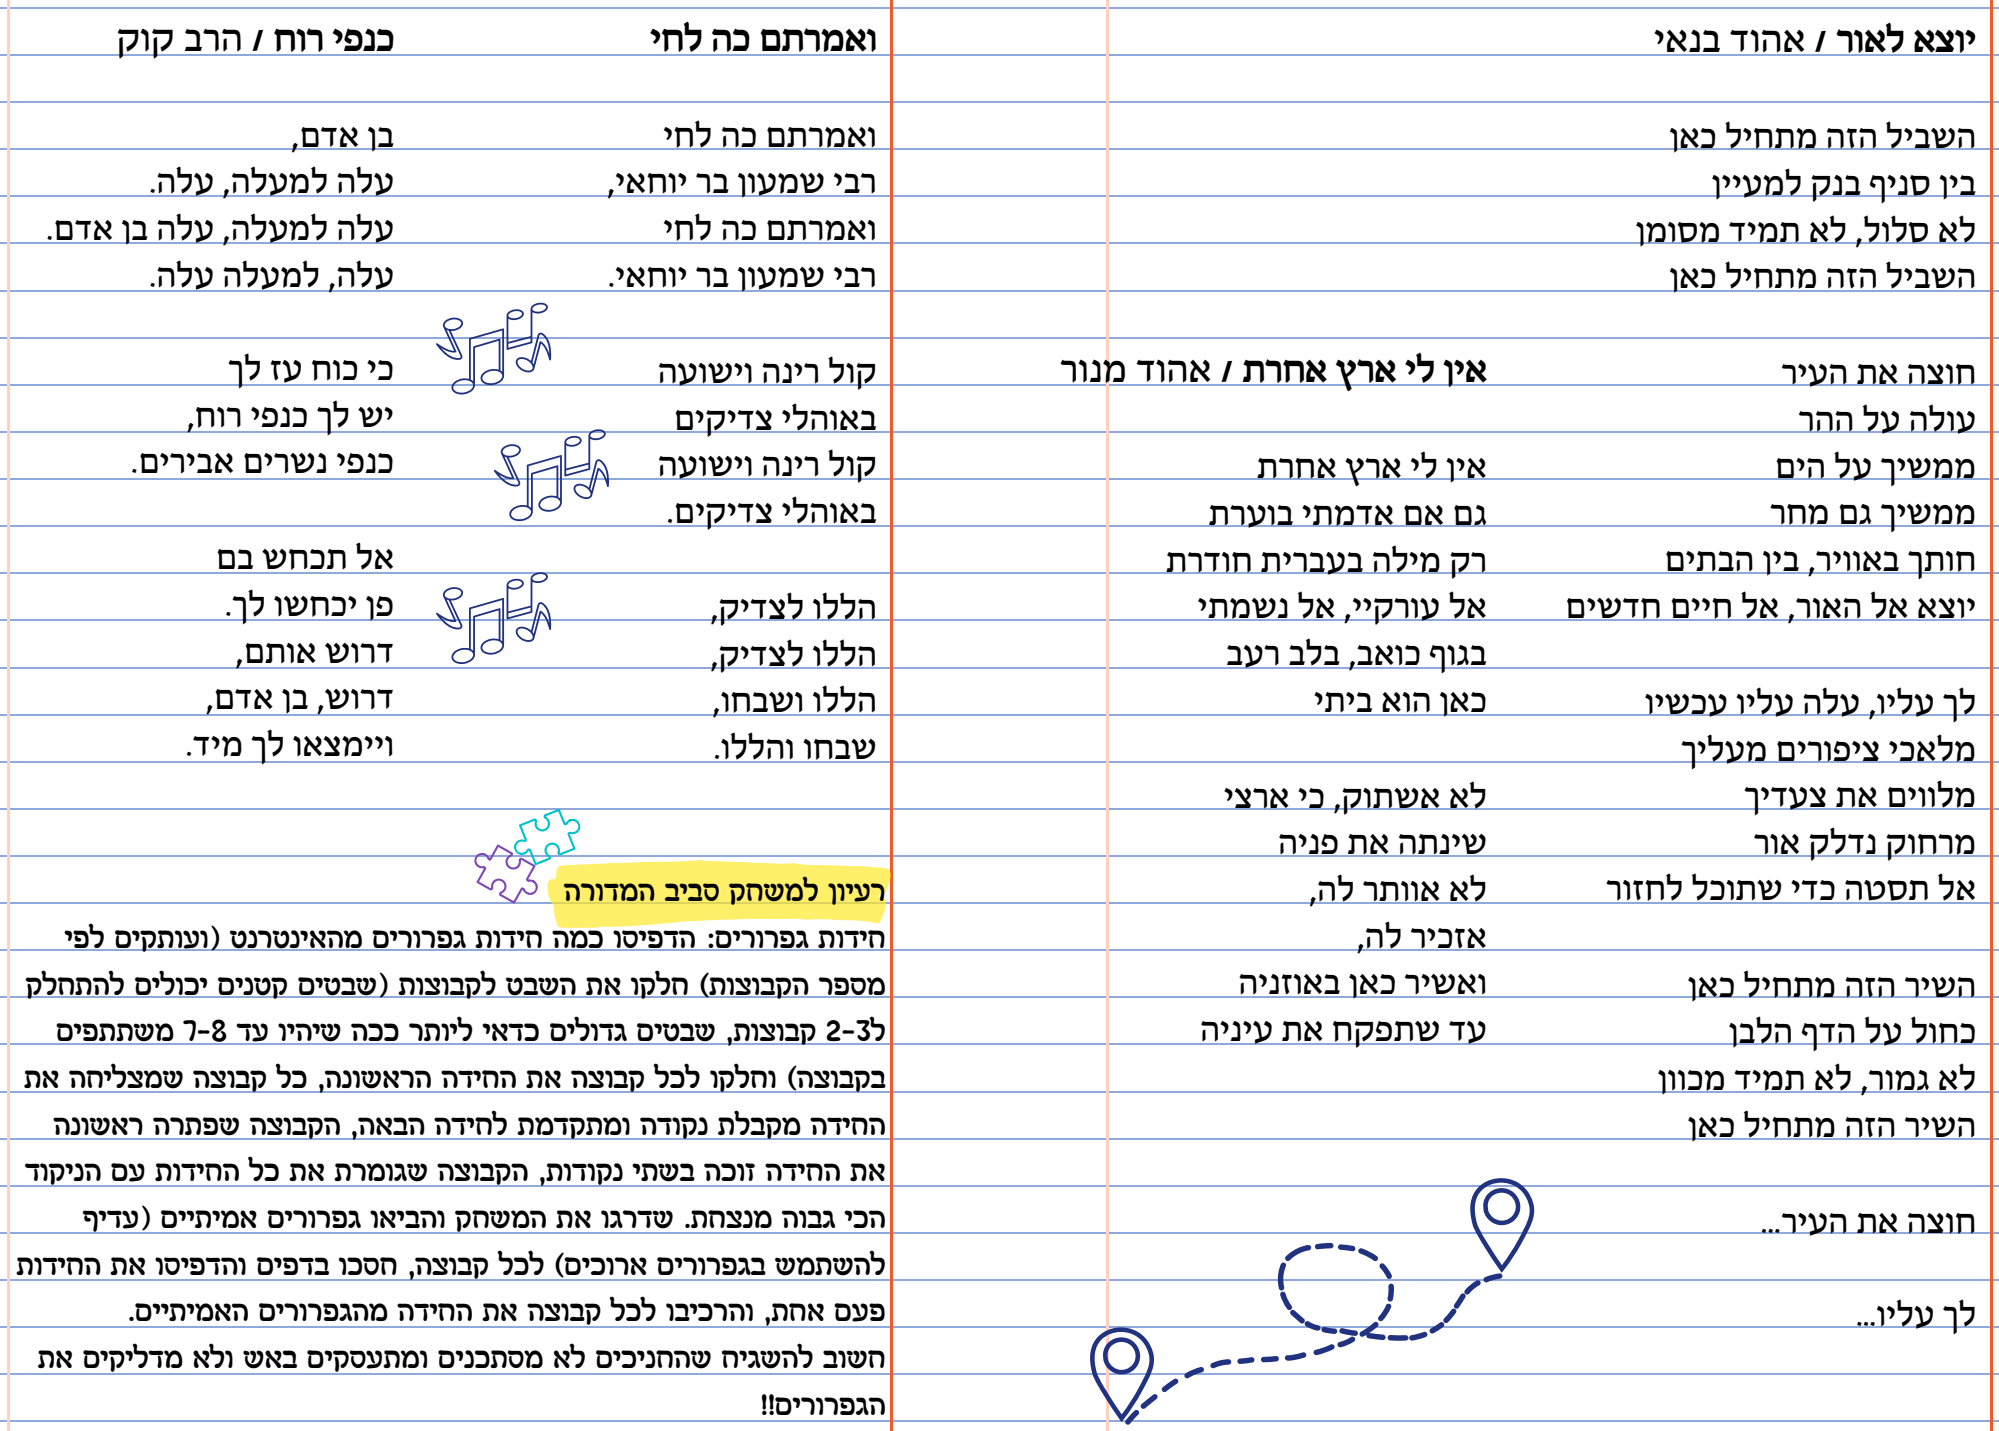 יוצא לאור / אהוד בנאי
השביל הזה מתחיל כאן
בין סניף בנק למעיין
לא סלול, לא תמיד מסומן
השביל הזה מתחיל כאן
חוצה את העיר
עולה על ההר
ממשיך על הים
ממשיך גם מחר
חותך באוויר, בין הבתים
יוצא אל האור, אל חיים חדשים
לך עליו, עלה עליו עכשיו
מלאכי ציפורים מעליך
מלווים את צעדיך
מרחוק נדלק אור
אל תסטה כדי שתוכל לחזור
השיר הזה מתחיל כאן
כחול על הדף הלבן
לא גמור, לא תמיד מכוון
השיר הזה מתחיל כאן
חוצה את העיר...
לך עליו...
אין לי ארץ אחרת / אהוד מנור
אין לי ארץ אחרת
גם אם אדמתי בוערת
רק מילה בעברית חודרת
אל עורקיי, אל נשמתי
בגוף כואב, בלב רעב
כאן הוא ביתי
לא אשתוק, כי ארצי
שינתה את פניה
לא אוותר לה,
אזכיר לה,
ואשיר כאן באוזניה
עד שתפקח את עיניה
ואמרתם כה לחי
ואמרתם כה לחי
רבי שמעון בר יוחאי,
ואמרתם כה לחי
רבי שמעון בר יוחאי.
קול רינה וישועה
באוהלי צדיקים
קול רינה וישועה
באוהלי צדיקים.
הללו לצדיק,
הללו לצדיק,
הללו ושבחו,
שבחו והללו.
כנפי רוח / הרב קוק
בן אדם,
עלה למעלה, עלה.
עלה למעלה, עלה בן אדם.
עלה, למעלה עלה.
כי כוח עז לך
יש לך כנפי רוח,
כנפי נשרים אבירים.
אל תכחש בם
פן יכחשו לך.
דרוש אותם,
דרוש, בן אדם,
ויימצאו לך מיד.
רעיון למשחק סביב המדורה
חידות גפרורים: הדפיסו כמה חידות גפרורים מהאינטרנט (ועותקים לפי
מספר הקבוצות) חלקו את השבט לקבוצות (שבטים קטנים יכולים להתחלק
ל2-3 קבוצות, שבטים גדולים כדאי ליותר ככה שיהיו עד 7-8 משתתפים
בקבוצה) וחלקו לכל קבוצה את החידה הראשונה, כל קבוצה שמצליחה את
החידה מקבלת נקודה ומתקדמת לחידה הבאה, הקבוצה שפתרה ראשונה
את החידה זוכה בשתי נקודות, הקבוצה שגומרת את כל החידות עם הניקוד
הכי גבוה מנצחת. שדרגו את המשחק והביאו גפרורים אמיתיים (עדיף
להשתמש בגפרורים ארוכים) לכל קבוצה, חסכו בדפים והדפיסו את החידות
פעם אחת, והרכיבו לכל קבוצה את החידה מהגפרורים האמיתיים.
חשוב להשגיח שהחניכים לא מסתכנים ומתעסקים באש ולא מדליקים את
הגפרורים!!